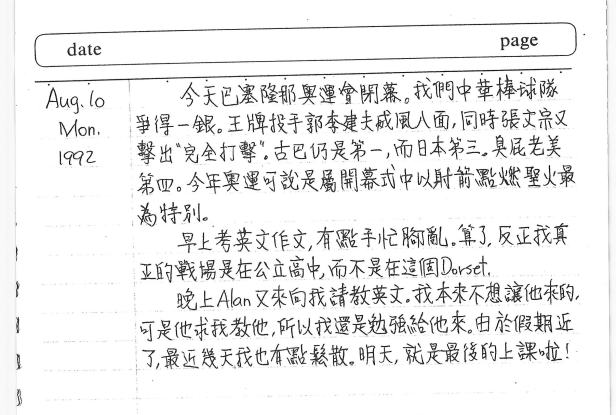 date
page
Aug. 10
Mon.
1992
今天巴塞隆那奧運會閉幕。我們中華棒球隊
爭得一銀。王牌投手郭李建夫威風人面,同時張文宗又
擊出“完全打擊”。古巴仍是第一,而日本第三。臭屁老美
第四。今年奧運可說是屬開幕式中以射箭點燃聖火最
為特別。
早上考英文作文,有點手忙腳亂。算了,反正我真
正的戰場是在公立高中,而不是在這個Dorset.
晚上Alan又來向我請教英文。我本來不想讓他來的,
可是他求我教他,所以我還是勉強給他來。由於假期近
了,最近幾天我也有點鬆散。明天,就是最後的上課啦!